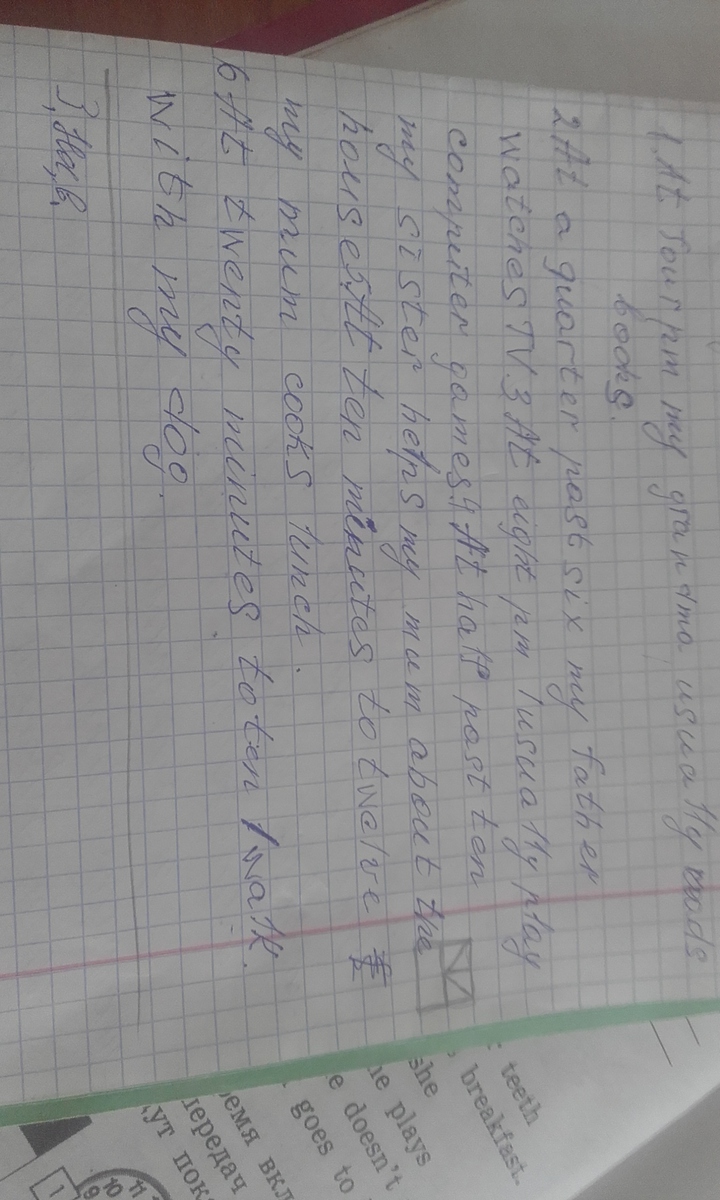 1. At four pm my grandma usually reads
books.
2 At a quarter past six my father
watches TV. 3 At eight pm I usually play
computer games. 4 At half past ten
my sister helps my mum about the
house. 5. At ten minutes to twelve
my mum cooks lunch.
6 At twenty minutes to ten I walk.
with my dog.
teeth
breakfast.
she
he plays
e doesn't
goes to
ремя вкл
передач
дут пока
11
10
9
1